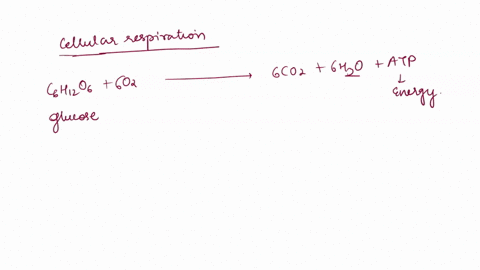 cellular respiration
C6H12O6 + 6O2 → 6CO2 + 6H2O + ATP
↓
glucose
Energy.